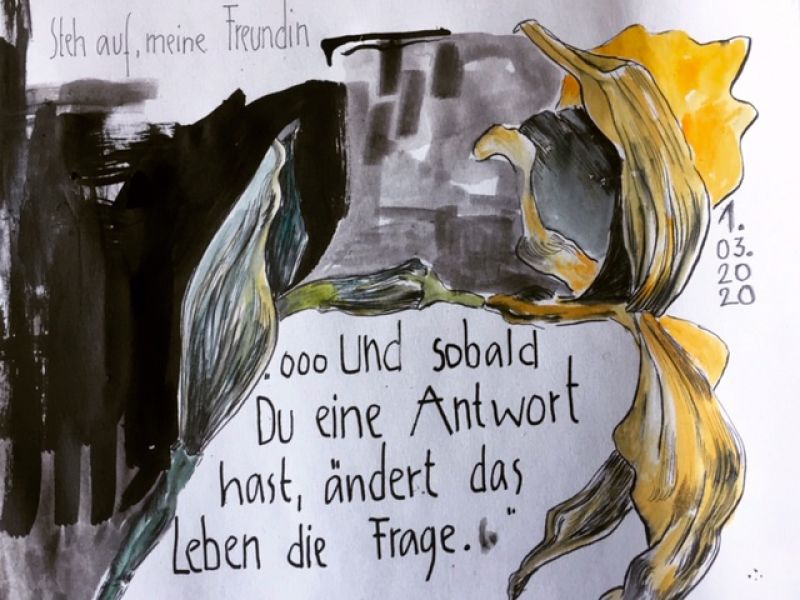 Steh auf, meine Freundin
1.
03.
20
20
...ooo Und sobald
Du eine Antwort
hast, ändert das
Leben die Frage."